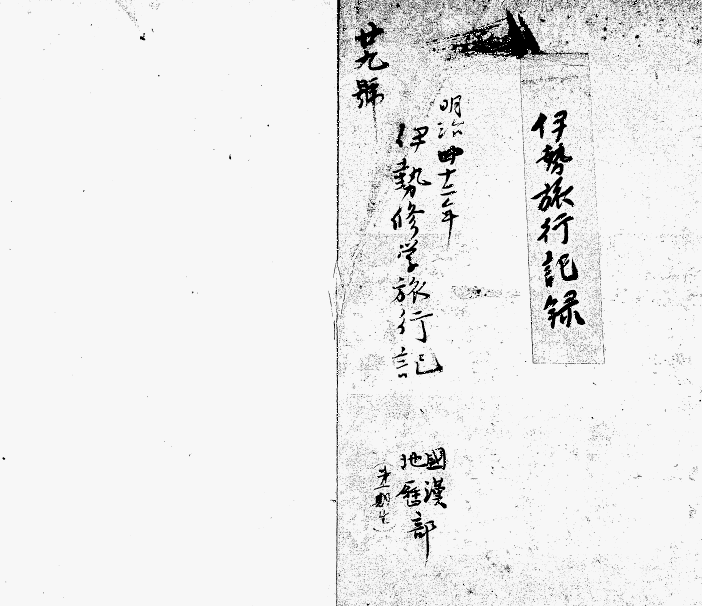 伊勢旅行記録
明治四十二年
伊勢修学旅行記
國漢
地歴部
(第一期生)
廿九號